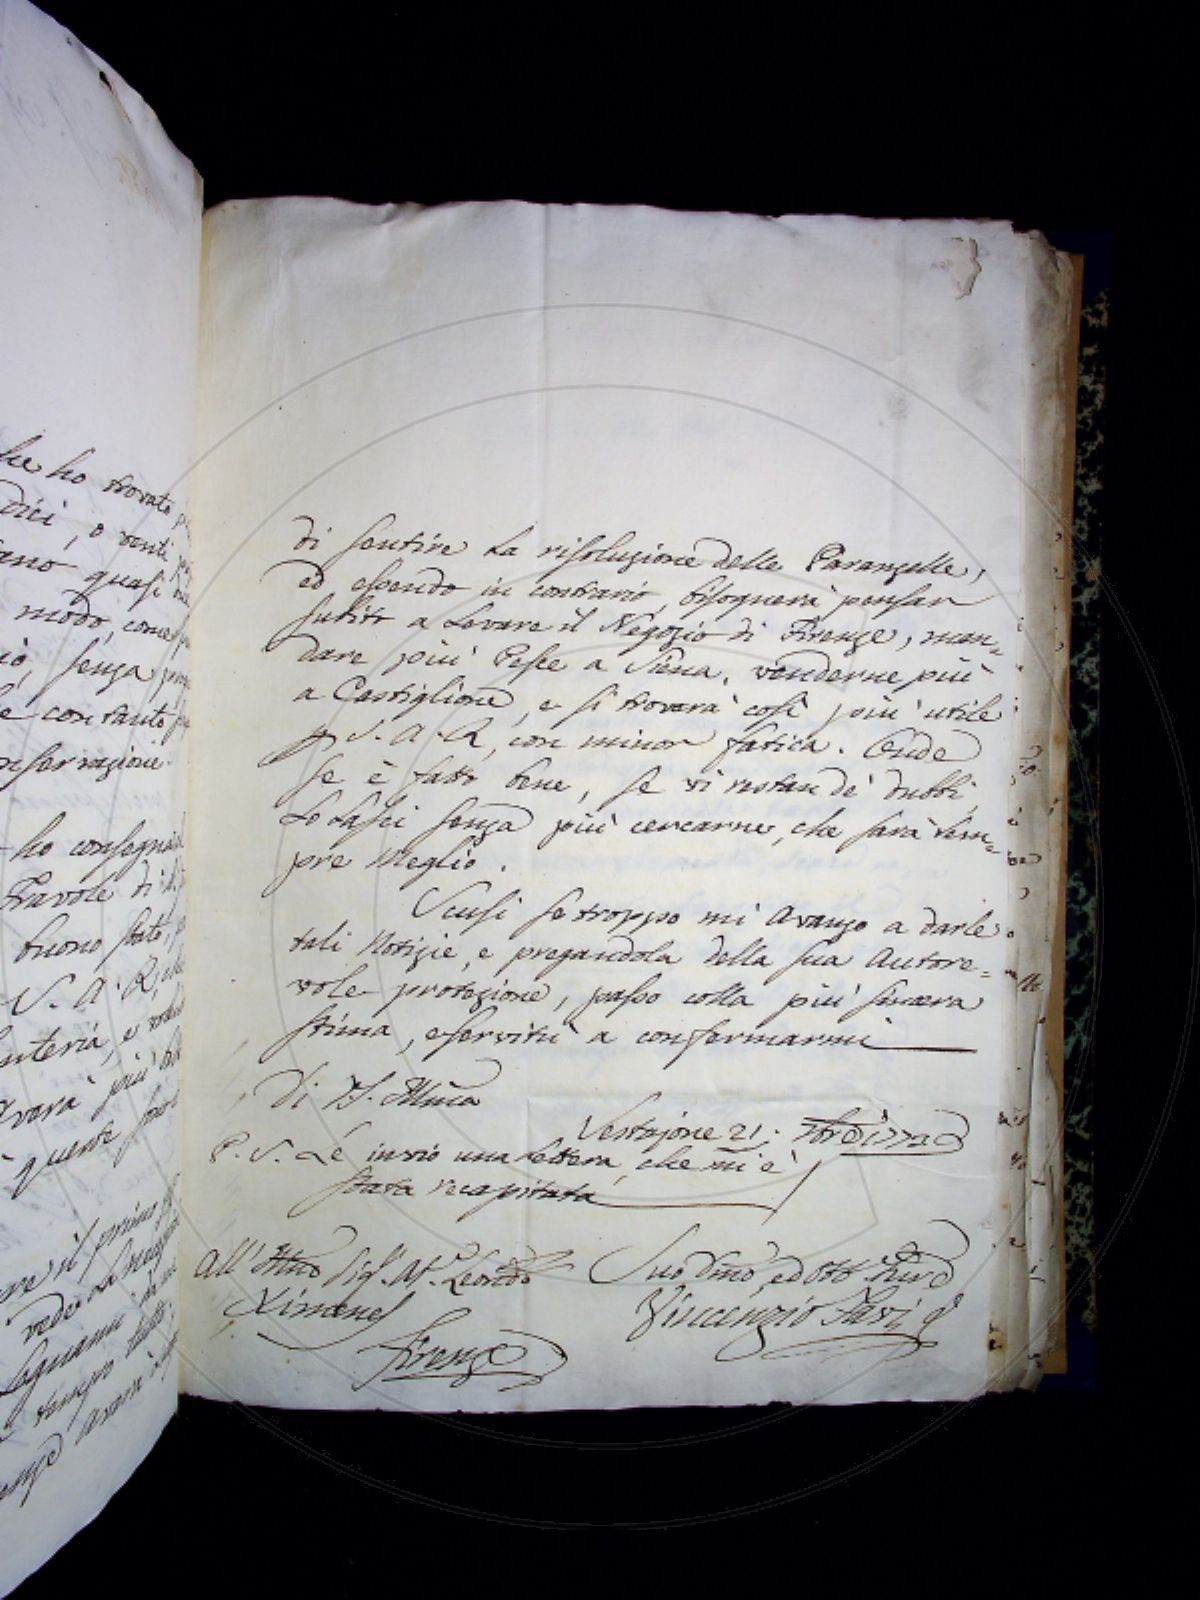 he ho trovato
dici, o venti
ano quasi
modo, come
iò, senza
e contanto
nservazione.
ho consegna
Tavole di
buono stato,
S. A. R, che
enteria, e
avarà più
queste
ere il primo
vede la
Lagnami
tempo tutti
avarà
di sentire la risoluzione delle Paranzelle,
ed essendo in contrario, bisognerà pensar
subito a Levare il Negozio di Firenze, man=
dare più Pesce a Siena, venderne più
a Castiglione, e si troverà così più utile
p S. A. R, con minor fatica. Crede
se è fatto bene, se vi restan de' dubbi,
Lo Lasci senza più cercarne, che sarà sem=
pre Meglio.
Scusi se troppo mi Avanzo a darle
tali Notizie, e pregandola della sua Autore=
vole protezione, passo colla più sincera
stima, e servitù a confermarmi
Di V. S. Illma
21
P. S. Le invio una Lettera, che mi è
stata recapitata
All' Illmo Sigr. Ab. Leondo
Ximenes
Firenze
Suo Dmo, ed Obb Servo
Vincenzio Favi